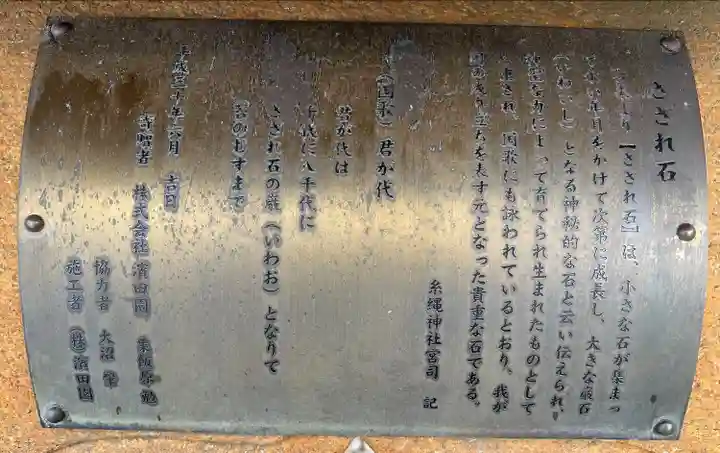 さざれ石
【さざれ石】は、小さな石が集まっ
年月をかけて次第に成長し、大きな巌石
(いわいし)となる神秘的な石と云い伝えられ、
な力によって育てられ生まれたものとして
重され、国歌にも詠われているとおり、我が
国の成り立ちを表す元となった貴重な石である。
糸縄神社宮司 記
(国歌)君が代
君が代は
千代に八千代に
さざれ石の巌(いわお)となりて
苔のむすまで
平成三十年 月 吉日
寄贈者 株式会社濱田園
協力者 大沼
施工者 ㈱濱田園